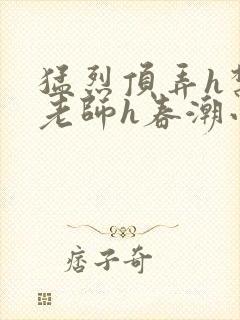 猛烈頂弄h
老師h春潮
痞子奇